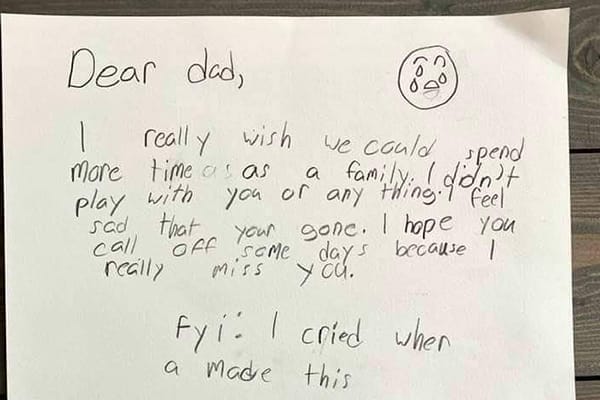 Dear dad,
I really wish we could spend
more time as as a family. I didn't
play with you or any thing. I feel
sad that your gone. I hope you
call off some days because I
really miss you.
Fyi: I cried when
a made this